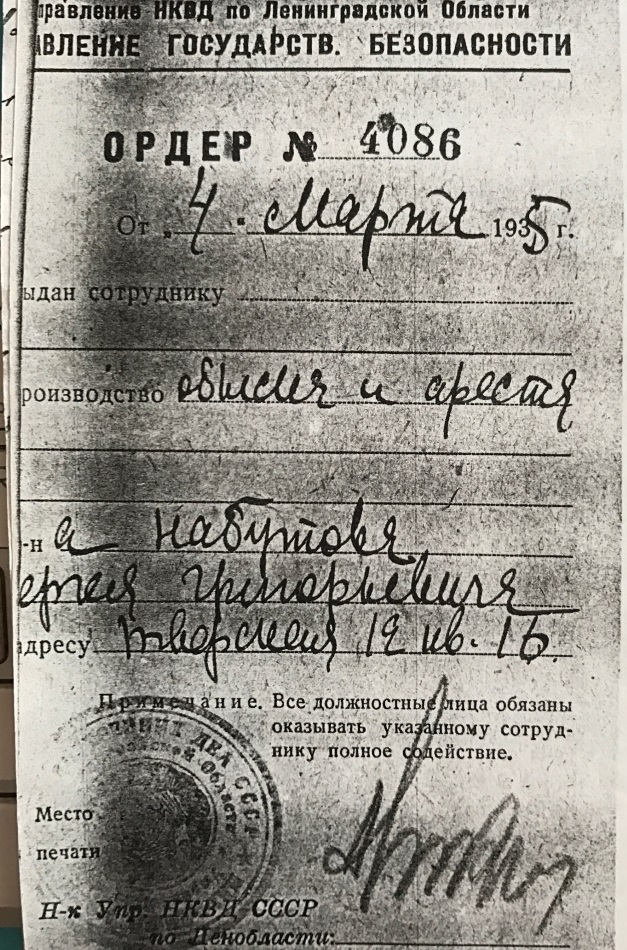 правление НКВД по Ленинградской Области
АВЛЕНИЕ ГОСУДАРСТВ. БЕЗОПАСНОСТИ
ОРДЕР № 4086
От „4. Марта 1935 г.
ыдан сотруднику
роизводство обыска и ареста
-н а Набутова
ергея Григорьевича
адресу Тверская 12 кв. 16
Примечание. Все должностные лица обязаны
оказывать указанному сотруд-
нику полное содействие.
ДЕЛ СССР
Области
Место
печати
Н-к Упр. НКВД СССР
по Ленобласти: